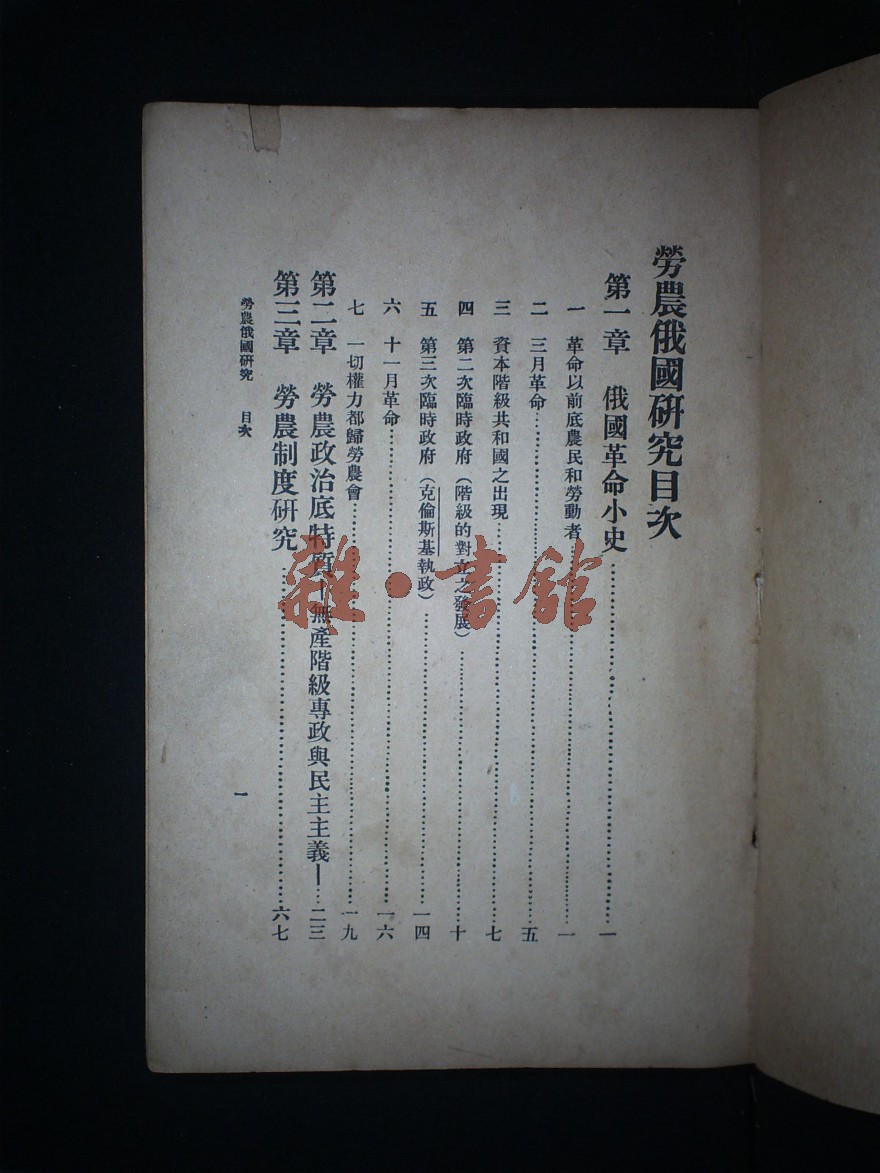 勞農俄國研究目次
第一章 俄國革命小史……一
一 革命以前底農民和勞動者……一
二 三月革命……五
三 資本階級共和國之出現……七
四 第二次臨時政府（階級的對立之發展）……十
五 第三次臨時政府（克倫斯基執政）……一四
六 十一月革命……一六
七 一切權力都歸勞農會……一九
第二章 勞農政治底特質—無產階級專政與民主主義—……二三
第三章 勞農制度研究……六七
勞農俄國研究 目次 一
雜·書館